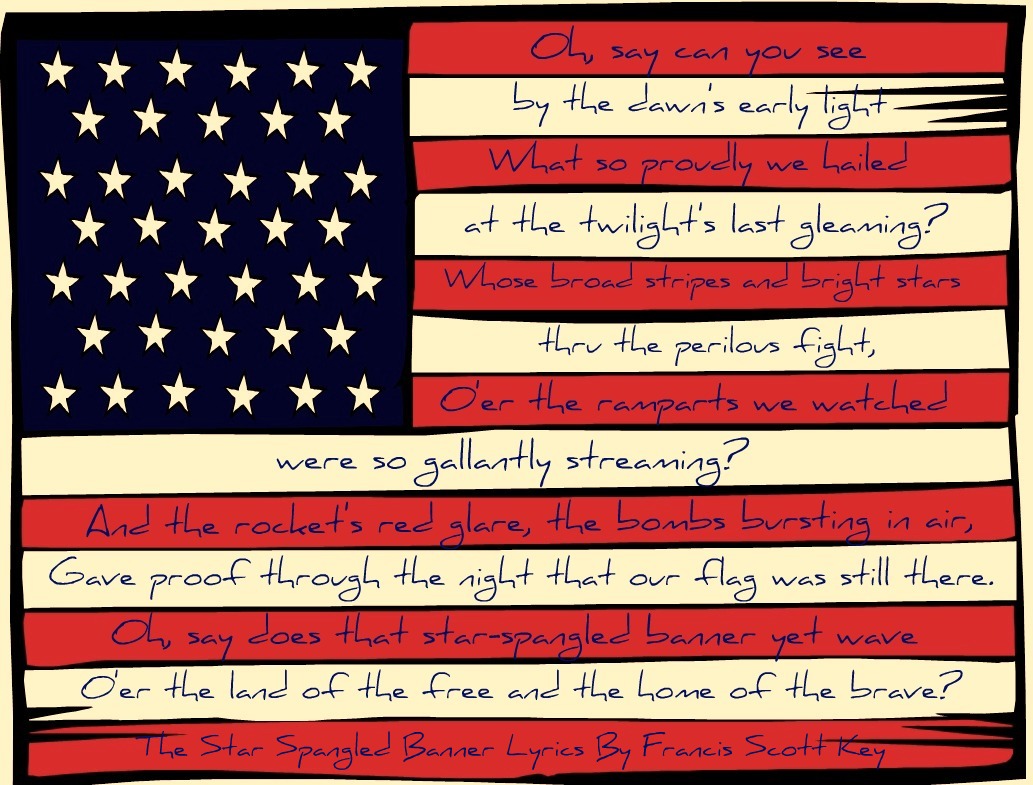 Oh, say can you see
by the dawn's early light
What so proudly we hailed
at the twilight's last gleaming?
Whose broad stripes and bright stars
thru the perilous fight,
O'er the ramparts we watched
were so gallantly streaming?
And the rocket's red glare, the bombs bursting in air,
Gave proof through the night that our flag was still there.
Oh, say does that star-spangled banner yet wave
O'er the land of the free and the home of the brave?
The Star Spangled Banner Lyrics By Francis Scott Key